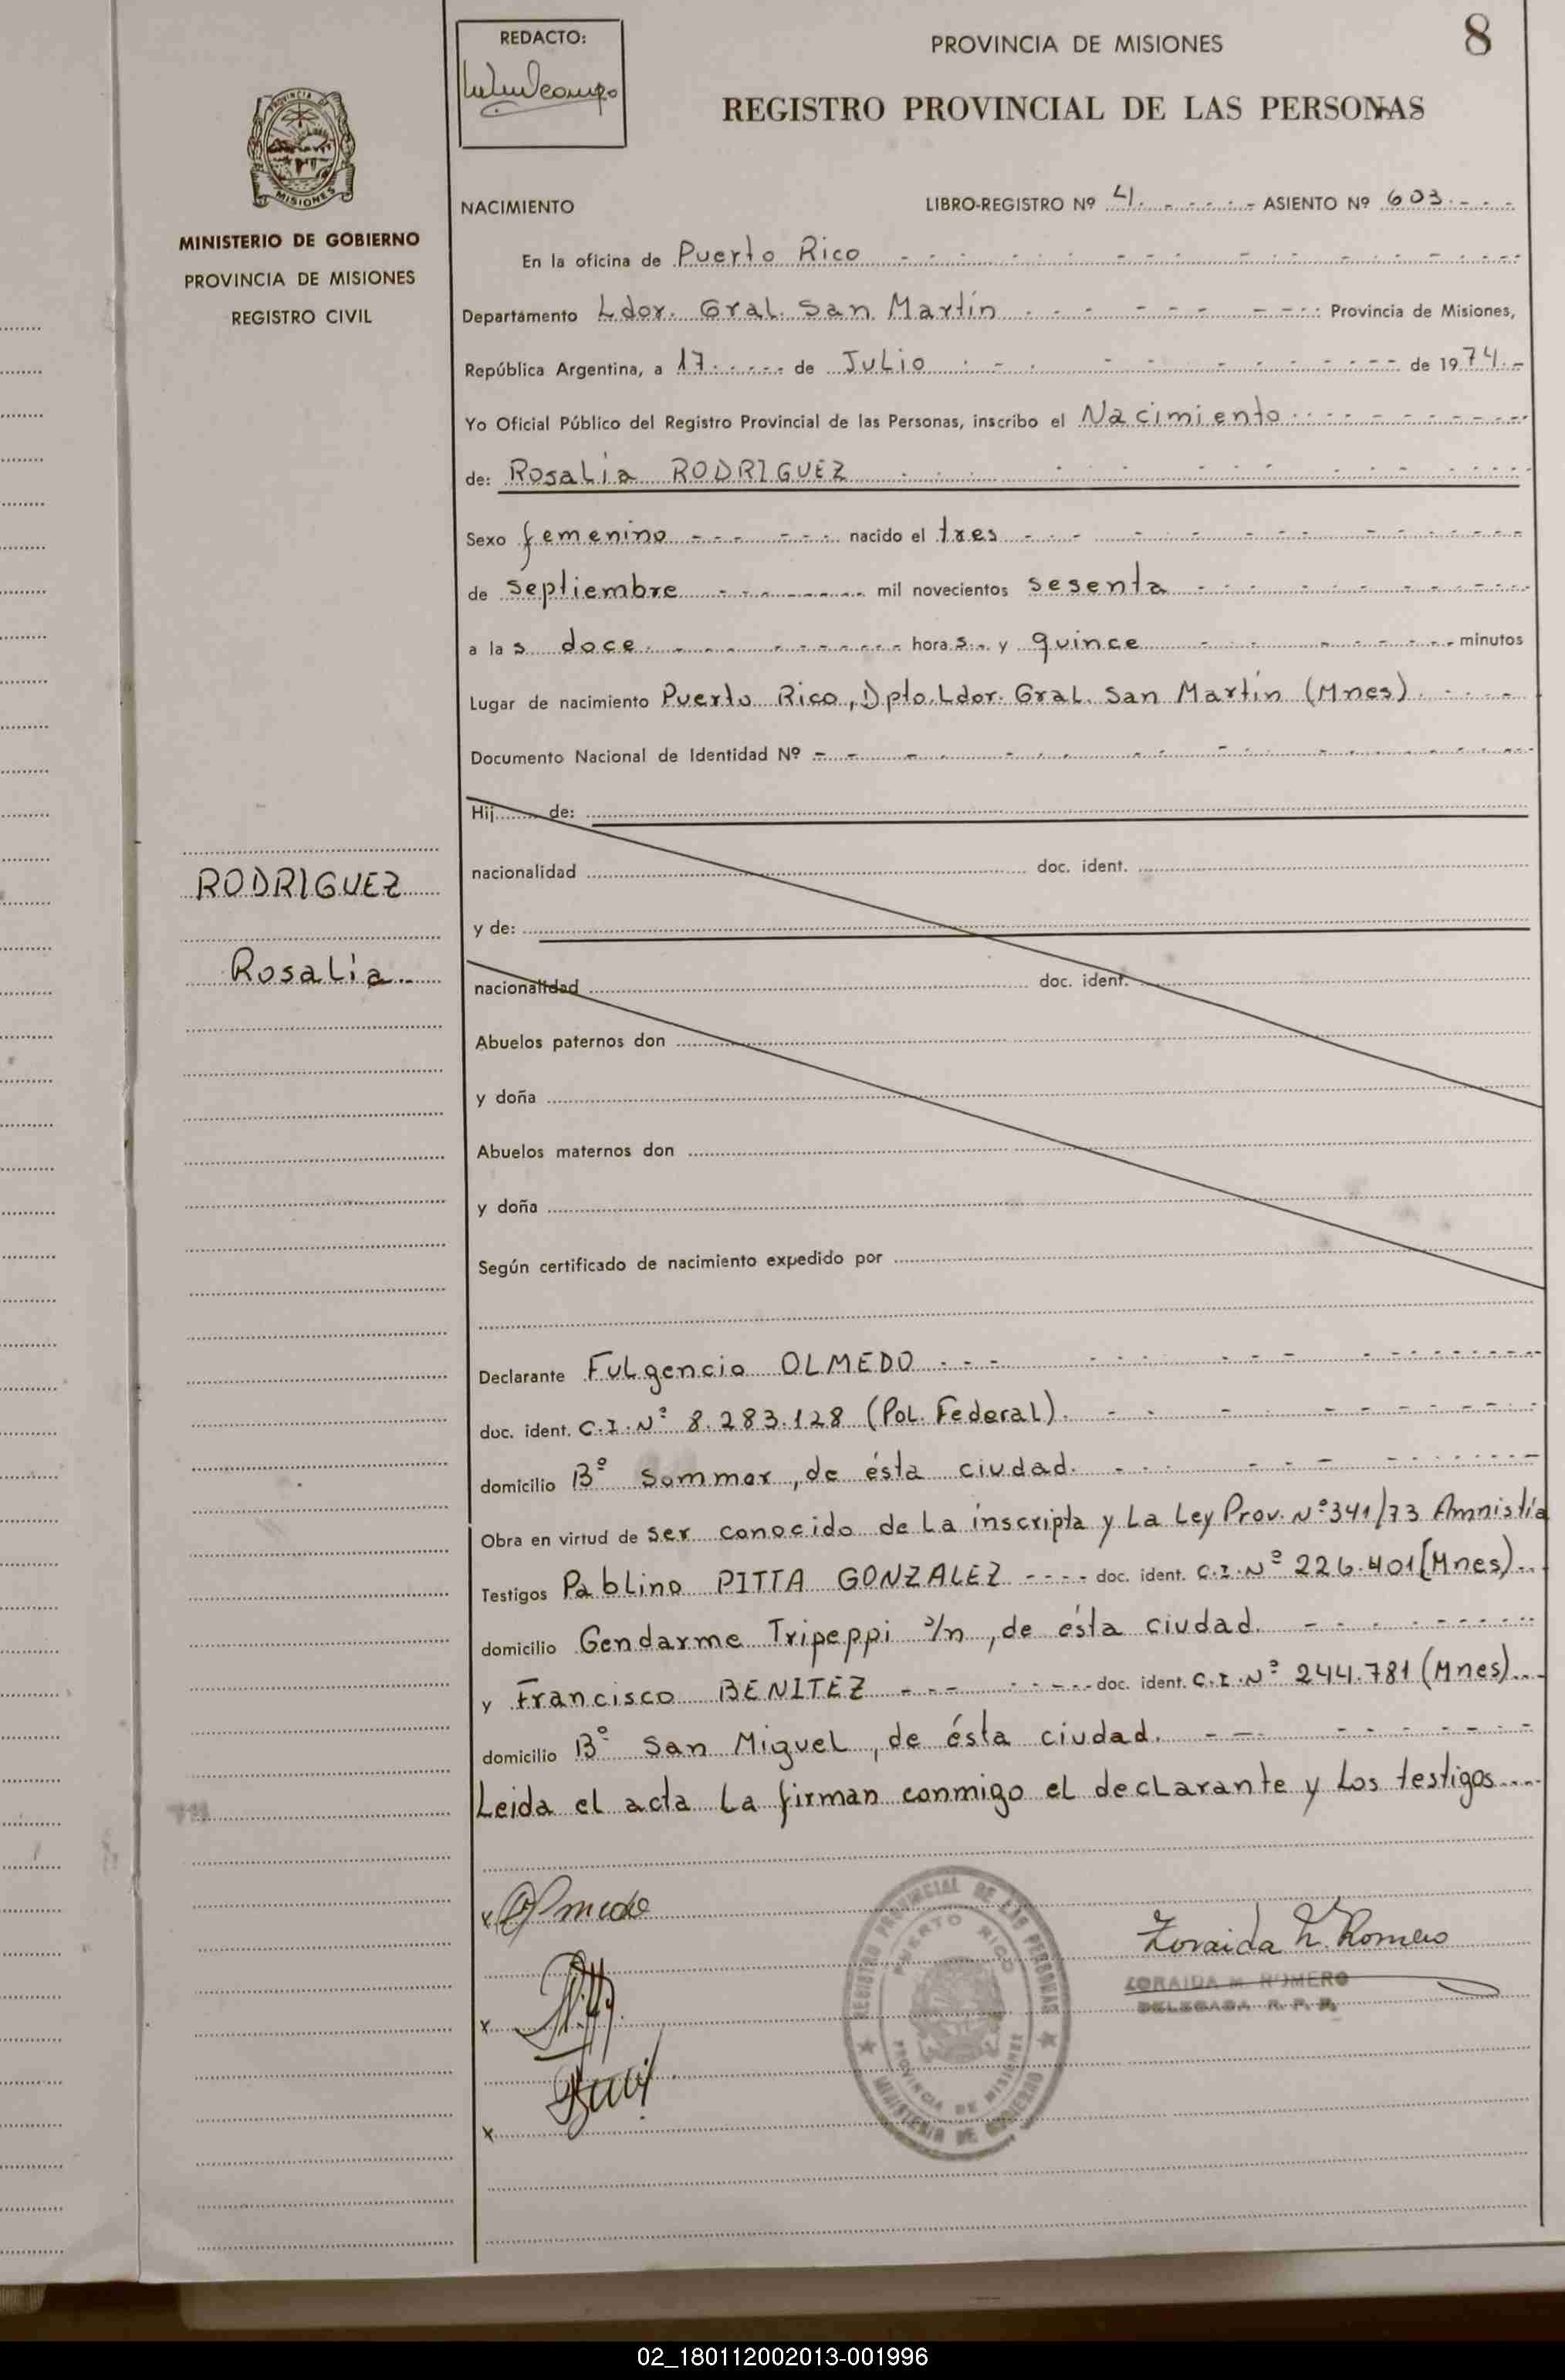 REDACTO:
PROVINCIA DE MISIONES
8
REGISTRO PROVINCIAL DE LAS PERSONAS
PROVINCIA DE
MISIONES
MINISTERIO DE GOBIERNO
PROVINCIA DE MISIONES
REGISTRO CIVIL
NACIMIENTO LIBRO-REGISTRO Nº 4 ASIENTO Nº 603
En la oficina de Puerto Rico
Departamento Ldor. Gral. San Martín Provincia de Misiones,
República Argentina, a 17 de Julio de 1974.-
Yo Oficial Público del Registro Provincial de las Personas, inscribo el Nacimiento
de: Rosalía RODRIGUEZ
Sexo femenino nacido el tres
de septiembre mil novecientos sesenta
a las doce horas y quince minutos
Lugar de nacimiento Puerto Rico, Dpto. Ldor. Gral. San Martín (Mnes)
Documento Nacional de Identidad Nº
Hij de:
nacionalidad doc. ident.
y de:
nacionalidad doc. ident.
Abuelos paternos don
y doña
Abuelos maternos don
y doña
Según certificado de nacimiento expedido por
RODRIGUEZ
Rosalía
Declarante Fulgencio OLMEDO
doc. ident. C.I. Nº 8.283.128 (Pol. Federal).
domicilio Bº Sommer, de ésta ciudad.
Obra en virtud de ser conocido de la inscripta y La Ley Prov. Nº 341/73 Amnistía
Testigos Pablino PITTA GONZALEZ doc. ident. C.I. Nº 226.401 (Mnes)
domicilio Gendarme Tripeppi s/n, de ésta ciudad.
y Francisco BENITEZ doc. ident. C.I. Nº 244.781 (Mnes)
domicilio Bº San Miguel, de ésta ciudad.
Leida el acta la firman conmigo el declarante y los testigos
x Olmedo
x
x
REGISTRO PROVINCIAL DE LAS PERSONAS
PUERTO RICO
PROVINCIA DE MISIONES
MINISTERIO DE GOBIERNO
Zoraida M. Romero
ZORAIDA M. ROMERO
DELEGADA R. P. P.
02_180112002013-001996